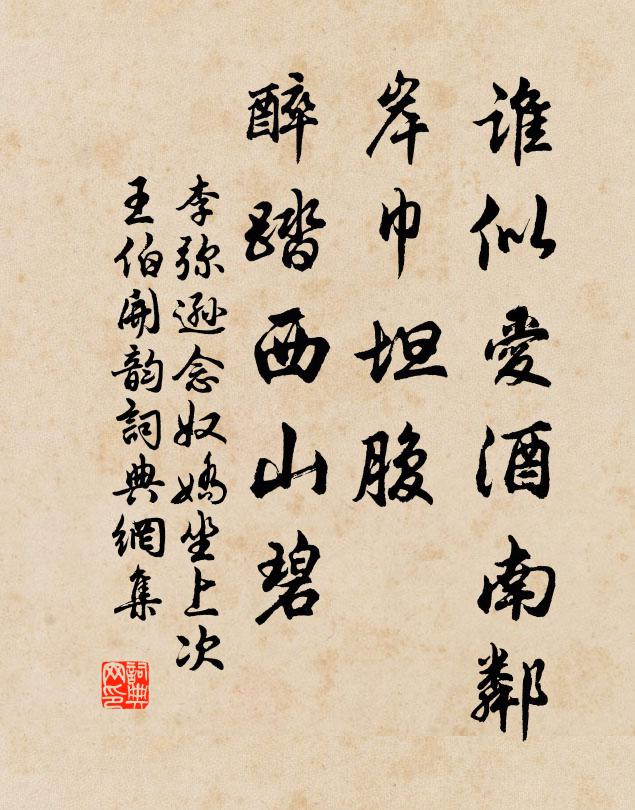 誰似愛酒南鄰
岸巾坦腹
醉踏西山碧
李弥遜念奴嬌坐上次
王伯開韵詞典網集
詞典
网印